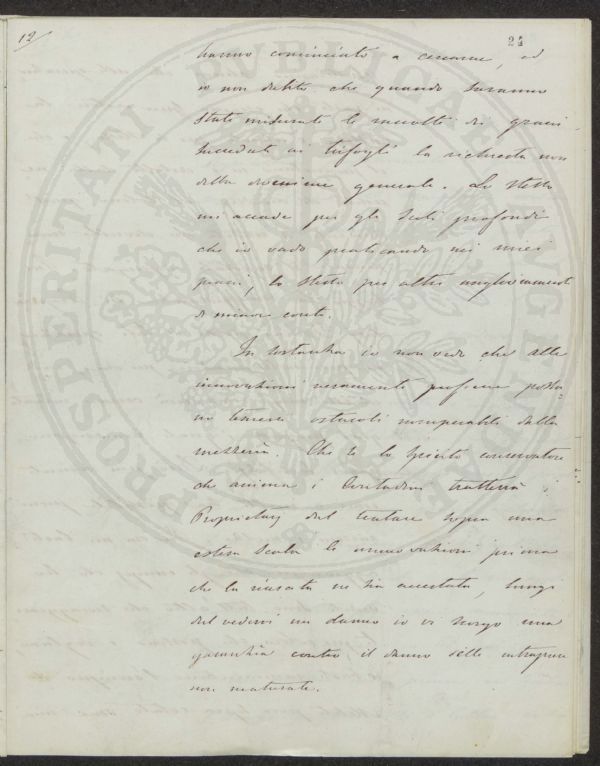 12
24
hanno cominciato a cercarne, ed
io non dubito che quando saranno
stati misurati le raccolti di grani
succeduti ai trifogli la richiesta non
debba divenire generale. Lo stesso
mi accade per gli scoli profondi
che io vado praticando nei miei
piani, lo stesso per altri miglioramenti
di minor conto.
In sostanza io non vedo che alle
innovazioni veramente proficue possa=
no temersi ostacoli insuperabili dalla
mezzeria. Che se lo spirito conservatore
che anima i Contadini tratterrà i
Proprietarj dal tentare sopra una
estesa scala le innovazioni prima
che la riuscita ne sia accertata, lungi
dal vedervi un danno io vi scorgo una
garanzia contro il danno delle intraprese
non maturate.
PROSPERITATI PUBLICAE AUGENDAE